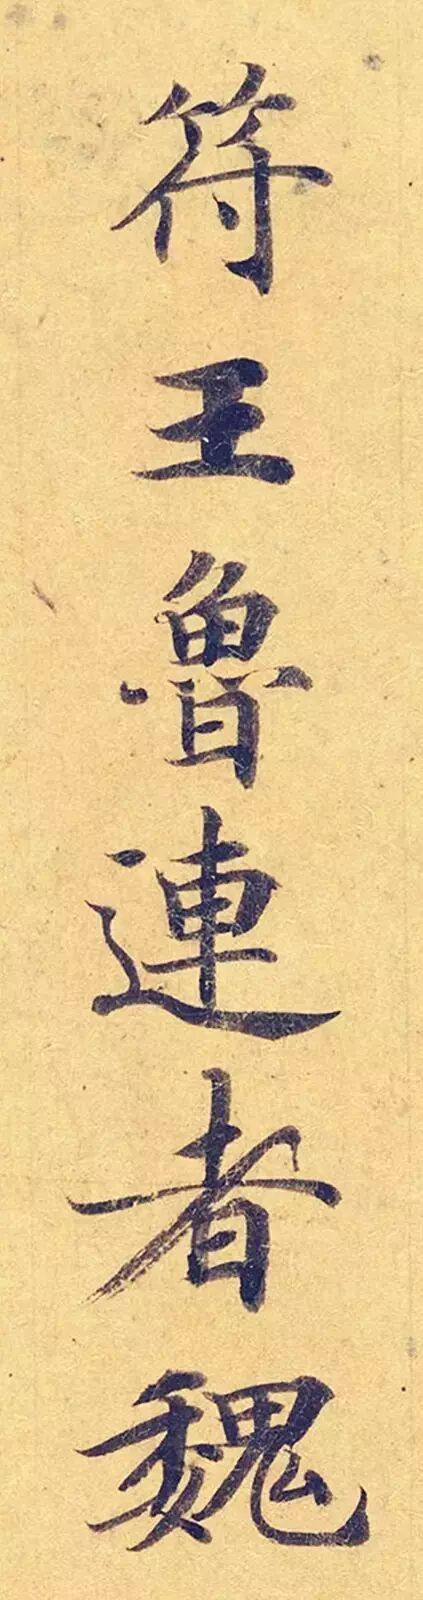 符王魯連者魏